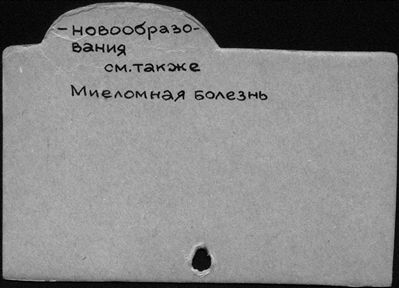 -новообразо-
вания
см.также
Миеломная болезнь